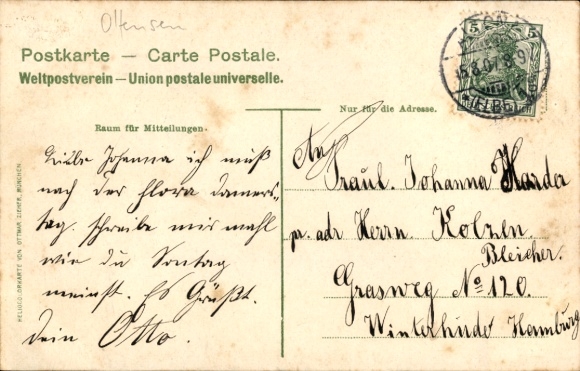 Ottensen
Postkarte – Carte Postale.
Weltpostverein – Union postale universelle.
5 5
Nur für die Adresse.
Raum für Mitteilungen.
Liebe Johanna ich muß
nach der Flora Donners-
tag. schreibe mir mahl
wie du Sontag
meinst. Es Grüßt.
dein Otto.
An
Fraul. Johanna Harder
pr. adr Herrn Kolzen
Bleicher.
Grasweg No 120.
Winterhude Hamburg
HELIOCOLORKARTE VON OTTMAR ZIEHER, MÜNCHEN